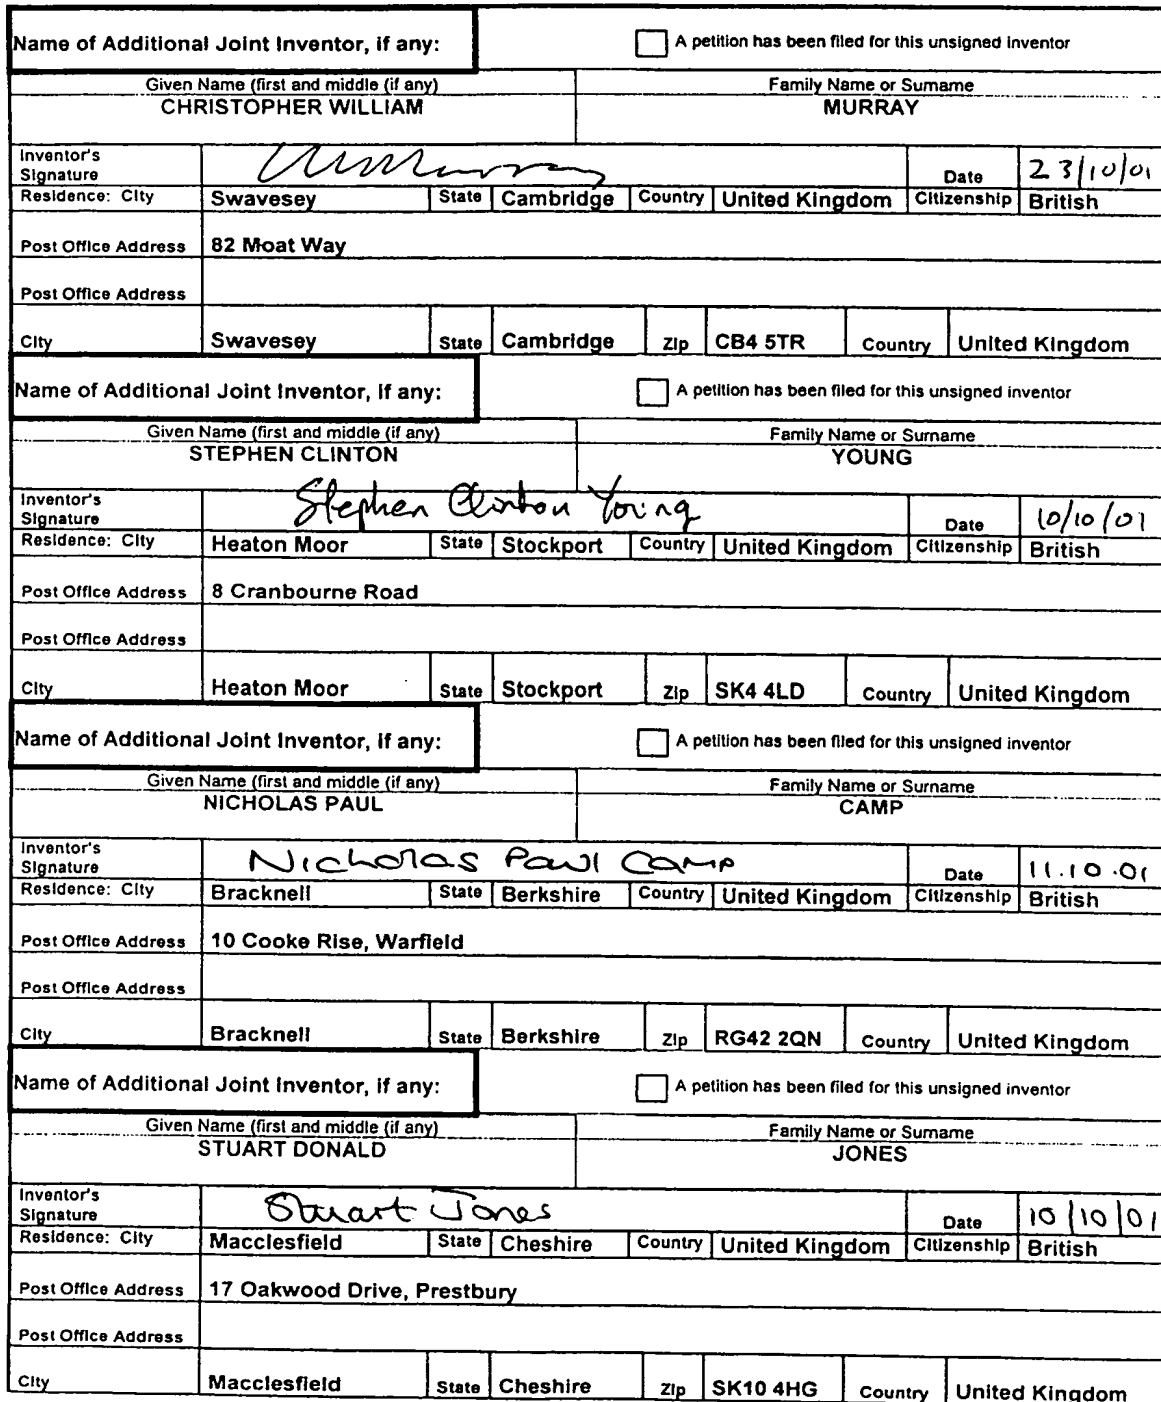 Name of Additional Joint Inventor, if any: A petition has been filed for this unsigned inventor
Given Name (first and middle (if any) Family Name or Surname
CHRISTOPHER WILLIAM MURRAY
Inventor's
Signature Date 23/10/01
Residence: City Swavesey State Cambridge Country United Kingdom Citizenship British
Post Office Address 82 Moat Way
Post Office Address
City Swavesey State Cambridge Zip CB4 5TR Country United Kingdom
Name of Additional Joint Inventor, if any: A petition has been filed for this unsigned inventor
Given Name (first and middle (if any) Family Name or Surname
STEPHEN CLINTON YOUNG
Inventor's
Signature Stephen Clinton Young Date 10/10/01
Residence: City Heaton Moor State Stockport Country United Kingdom Citizenship British
Post Office Address 8 Cranbourne Road
Post Office Address
City Heaton Moor State Stockport Zip SK4 4LD Country United Kingdom
Name of Additional Joint Inventor, if any: A petition has been filed for this unsigned inventor
Given Name (first and middle (if any) Family Name or Surname
NICHOLAS PAUL CAMP
Inventor's
Signature Nicholas Paul Camp Date 11.10.01
Residence: City Bracknell State Berkshire Country United Kingdom Citizenship British
Post Office Address 10 Cooke Rise, Warfield
Post Office Address
City Bracknell State Berkshire Zip RG42 2QN Country United Kingdom
Name of Additional Joint Inventor, if any: A petition has been filed for this unsigned inventor
Given Name (first and middle (if any) Family Name or Surname
STUART DONALD JONES
Inventor's
Signature Stuart Jones Date 10/10/01
Residence: City Macclesfield State Cheshire Country United Kingdom Citizenship British
Post Office Address 17 Oakwood Drive, Prestbury
Post Office Address
City Macclesfield State Cheshire Zip SK10 4HG Country United Kingdom